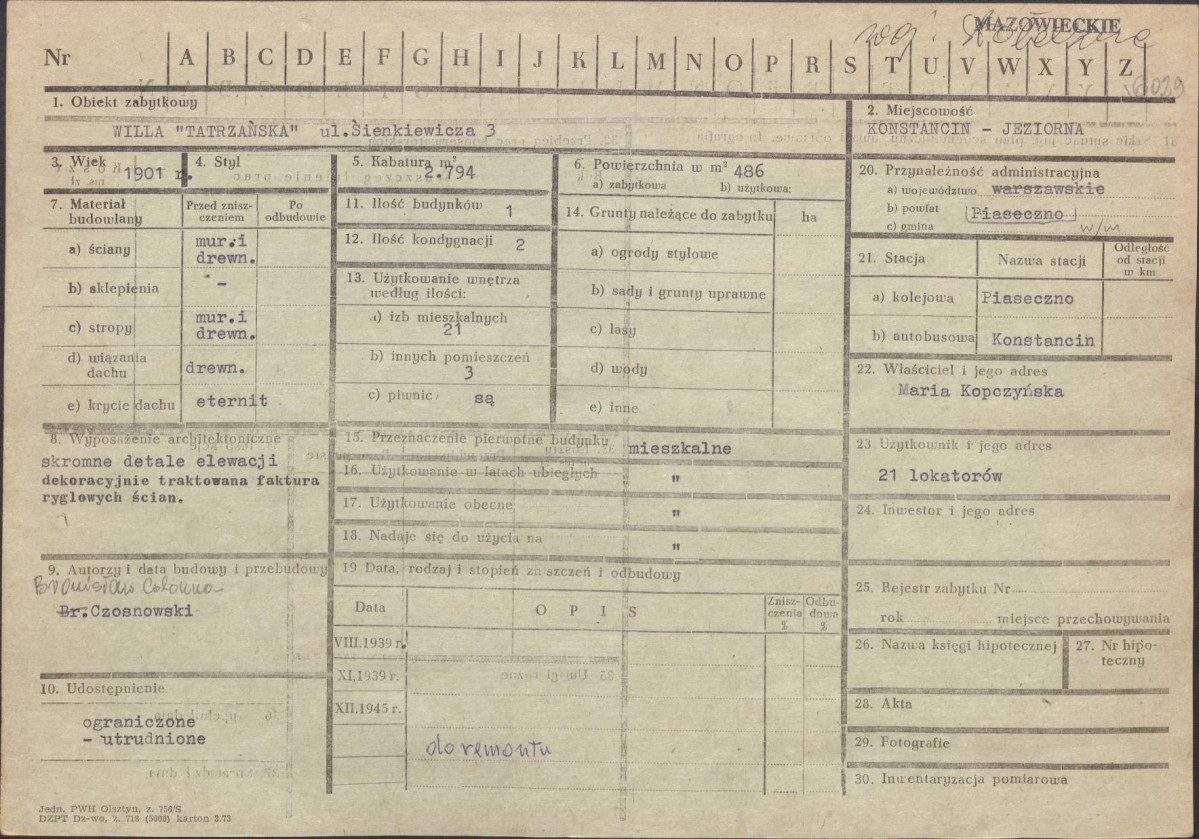 MAZOWIECKIE
woj. Stołeczne
Nr A B C D E F G H I J K L M N O P R S T U V W X Y Z
6029
1. Obiekt zabytkowy
WILLA "TATRZAŃSKA" ul.Sienkiewicza 3
2. Miejscowość
KONSTANCIN - JEZIORNA
3. Wiek
1901 r.
4. Styl
5. Kubatura m³
2.794
6. Powierzchnia w m² 486
a) zabytkowa b) użytkowa:
7. Materiał budowlany
Przed zniszczeniem
Po odbudowie
a) ściany mur.i drewn.
b) sklepienia -
c) stropy mur.i drewn.
d) wiązania dachu drewn.
e) krycie dachu eternit
8. Wyposażenie architektoniczne
skromne detale elewacji
dekoracyjnie traktowana faktura
ryglowych ścian.
9. Autorzy i data budowy i przebudowy
Bronisław Colonna
Br.Czosnowski
10. Udostępnienie
ograniczone
- utrudnione
11. Ilość budynków 1
12. Ilość kondygnacji 2
13. Użytkowanie wnętrza
według ilości:
a) izb mieszkalnych
21
b) innych pomieszczeń
3
c) piwnic są
14. Grunty należące do zabytku ha
a) ogrody stylowe
b) sady i grunty uprawne
c) lasy
d) wody
e) inne
15. Przeznaczenie pierwotne budynku mieszkalne
16. Użytkowanie w latach ubiegłych "
17. Użytkowanie obecne "
18. Nadaje się do użycia na "
19 Data, rodzaj i stopień zniszczeń i odbudowy
Data
O P I S
Zniszczenia %
Odbudowa %
VIII.1939 r.
XI.1939 r.
XII.1945 r.
do remontu
20. Przynależność administracyjna
a) województwo warszawskie
b) powiat Piaseczno
c) gmina w/m
21. Stacja
Nazwa stacji
Odległość
od stacji
w km
a) kolejowa Piaseczno
b) autobusowa Konstancin
22. Właściciel i jego adres
Maria Kopczyńska
23 Użytkownik i jego adres
21 lokatorów
24. Inwestor i jego adres
25. Rejestr zabytku Nr
rok miejsce przechowywania
26. Nazwa księgi hipotecznej
27. Nr hipoteczny
28. Akta
29. Fotografie
30. Inwentaryzacja pomiarowa
Jedn. PWH Olsztyn, z. 756/S
DZPT Dz-wo, z. 718 (5000) karton 3.73